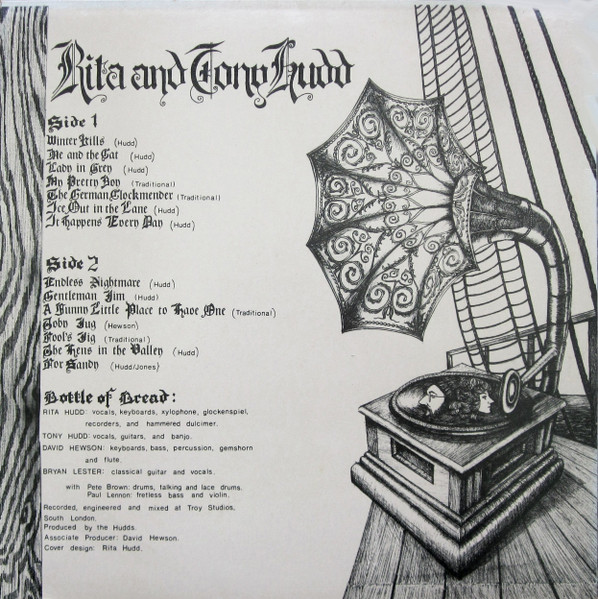 Rita and Tony Hudd
Side 1
Winter Kills (Hudd)
Me and the Cat (Hudd)
Lady in Grey (Hudd)
My Pretty Boy (Traditional)
The German Clockmender (Traditional)
Ice Out in the Lane (Hudd)
It Happens Every Day (Hudd)
Side 2
Endless Nightmare (Hudd)
Gentleman Jim (Hudd)
A Funny Little Place to Have One (Traditional)
Toby Jug (Hewson)
Fool's Jig (Traditional)
The Hens in the Valley (Hudd)
For Sandy (Hudd/Jones)
Bottle of Bread:
RITA HUDD: vocals, keyboards, xylophone, glockenspiel,
recorders, and hammered dulcimer.
TONY HUDD: vocals, guitars, and banjo.
DAVID HEWSON: keyboards, bass, percussion, gemshorn
and flute.
BRYAN LESTER: classical guitar and vocals.
with Pete Brown: drums, talking and lace drums.
Paul Lennon: fretless bass and violin.
Recorded, engineered and mixed at Troy Studios,
South London.
Produced by the Hudds.
Associate Producer: David Hewson.
Cover design: Rita Hudd.